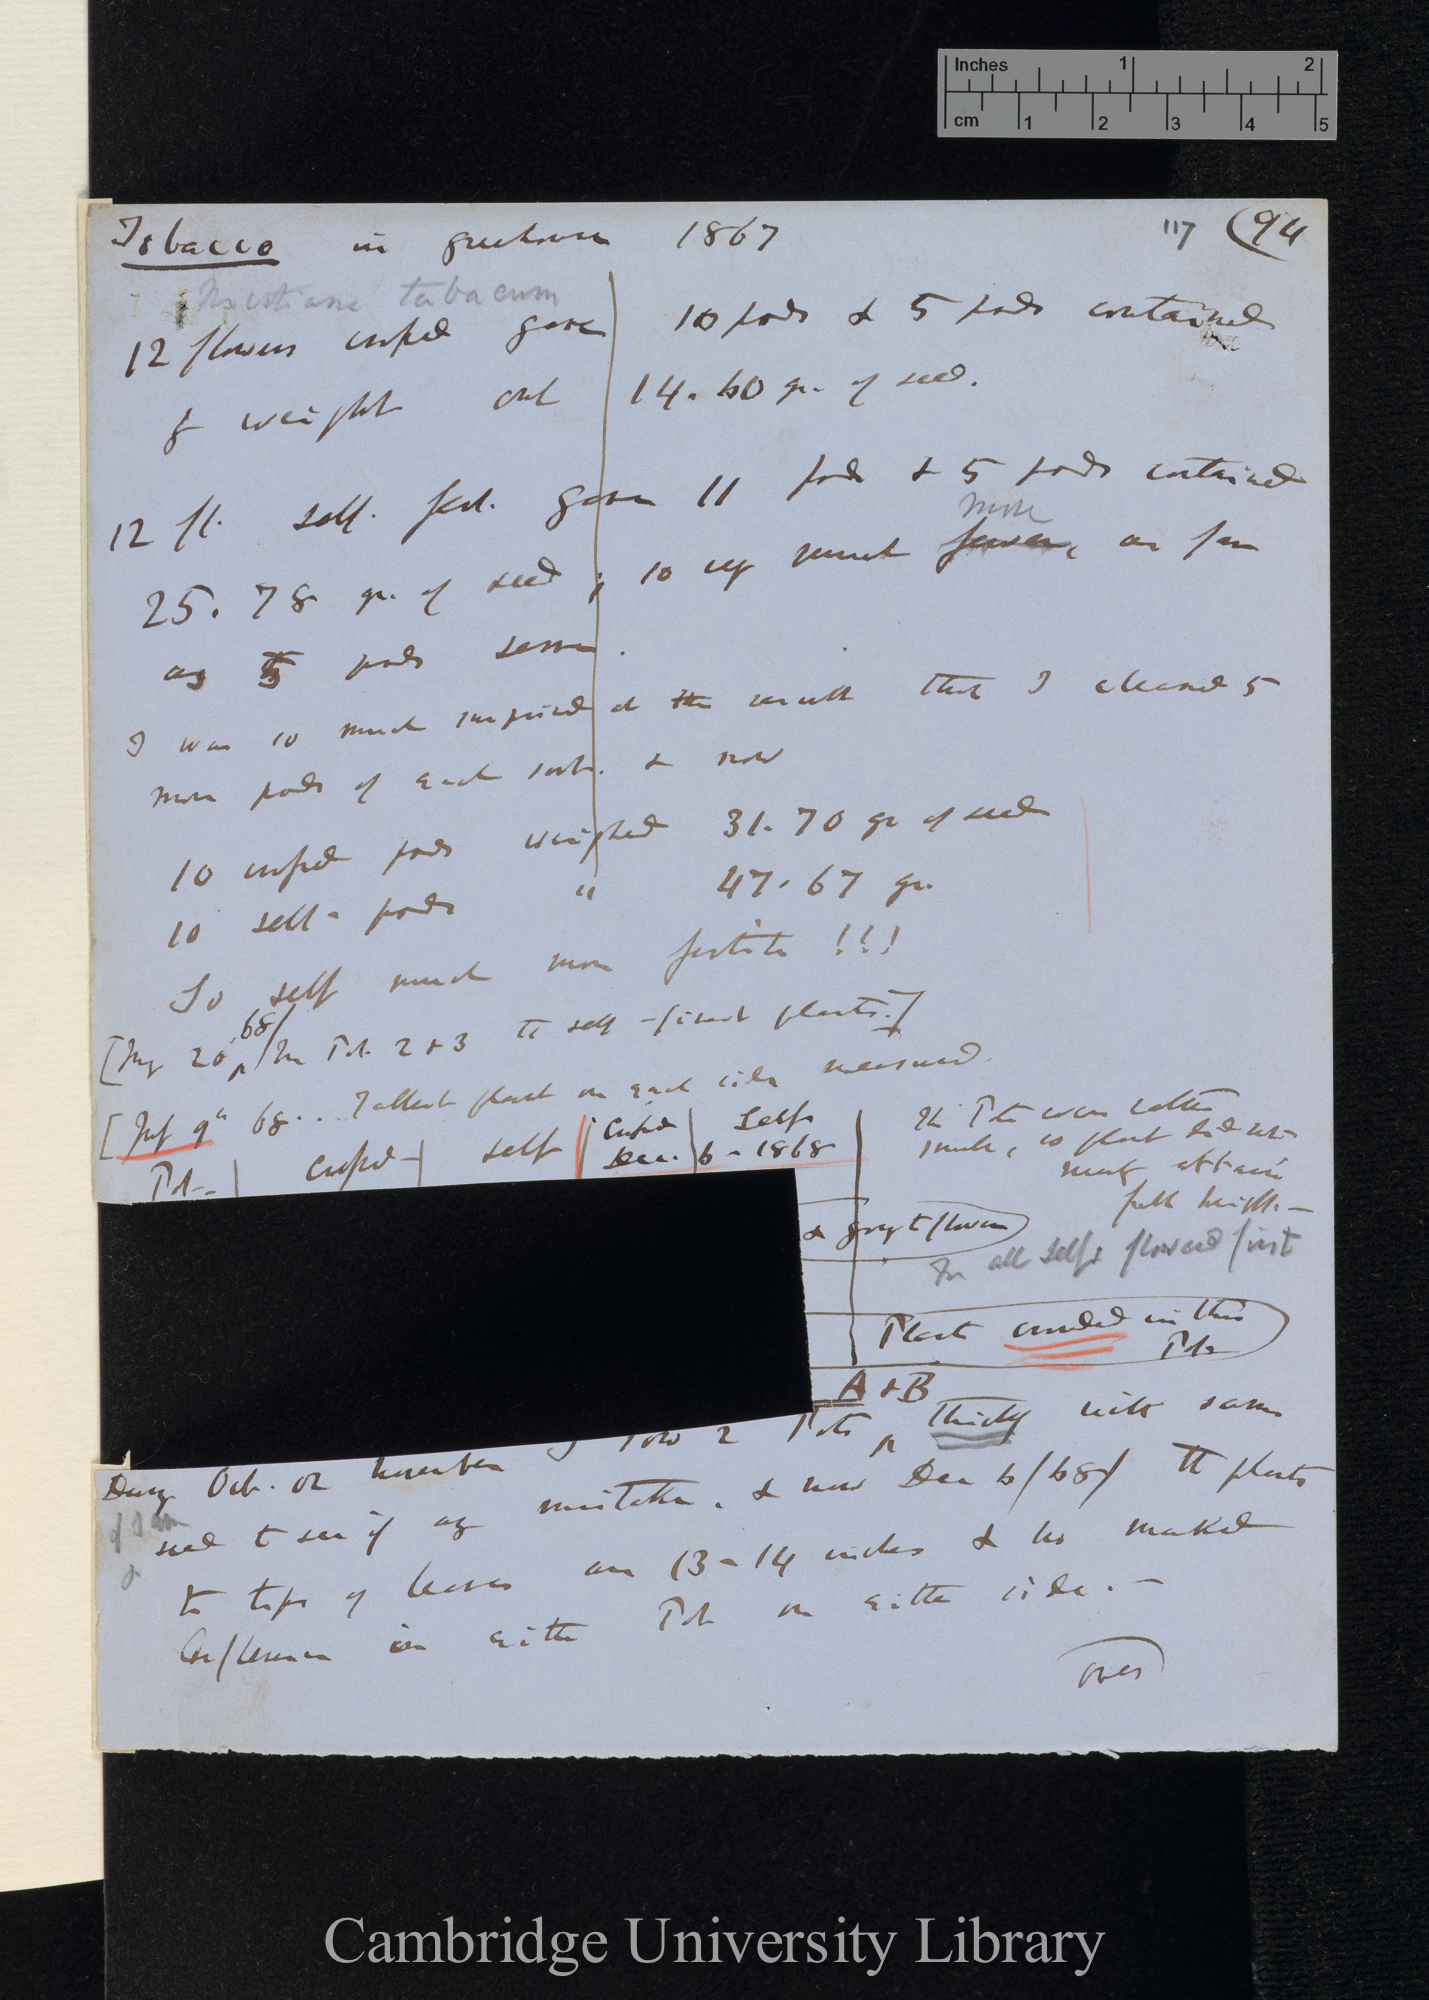 Inches 1 2
cm 1 2 3 4 5
Tobacco in greenhouse 1867
117 (94
Nicotiana tabacum
12 flowers crossed gave 10 pods & 5 pods contained
by weight only 14.60 gr. of seed.
12 fl. self. fert. gave 11 pods & 5 pods contained
more
25.78 gr. of seed; so very much fewer, as far
as 5 pods serve.
I was so much surprised at the result that I cleaned 5
more pods of each sort. & now
10 crossed pods weighed 31.70 gr of seed
10 self- pods " 47.67 gr.
So self much more fertile !!!
[May 20, 68/ In Pot. 2 & 3 the self-finest plants.]
[July 9th 68.. Tallest plant on each side measured.
Pot- Crossed- self Crossed Selfs
Dec. 6 - 1868
The Pots were rather
small, so plants did not
nearly attain
full height.—
& going to flower
In all selfs flowered first
Plants crowded in this
Pot
A & B
Oct. or November I sow 2 Pots thickly with same
seed to see if any mistake. & now Dec 6/68/ the plants
to tips of leaves are 13-14 inches & no marked
difference in either Pot on either side.—
over
Cambridge University Library